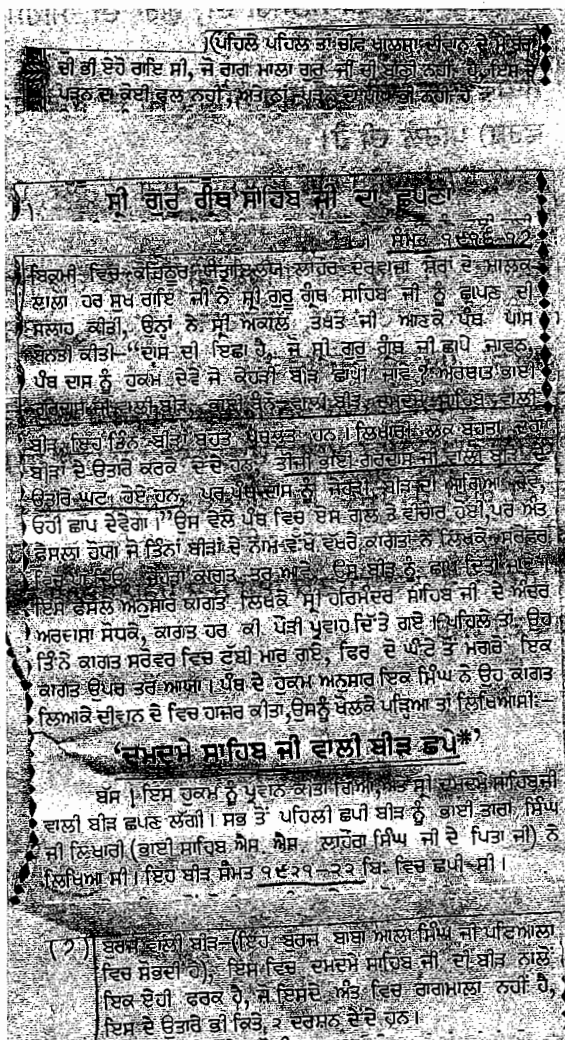 (ਪਹਿਲੇ ਪਹਿਲ ਤਾਂ ਚੀਫ਼ ਖਾਲਸਾ ਦੀਵਾਨ ਦੇ
ਦੀ ਭੀ ਏਹੋ ਰਾਇ ਸੀ, ਜੋ ਰਾਗ ਮਾਲਾ ਗੁਰੂ ਜੀ ਦੀ ਬਾਣੀ ਨਹੀਂ ਹੈ, ਇਸ ਦੇ
ਪੜਨ ਦਾ ਕੋਈ ਫਲ ਨਹੀਂ, ਅਤੇ ਨਾਂ ਪੜਨ ਦਾ ਪਾਪ ਭੀ ਨਹੀਂ ਹੈ
ਸ੍ਰੀ ਗੁਰੂ ਗ੍ਰੰਥ ਸਾਹਿਬ ਜੀ ਦਾ ਛਪਣਾ
ਸੰਮਤ ੧੯੧੬-੧੭
ਬਿਕ੍ਰਮੀ ਵਿਚ ਕੋਹਿਨੂਰ ਯੰਤ੍ਰਾਲਯ ਲਾਹੌਰ ਦਰਵਾਜਾ ਸ਼ੇਰਾਂ ਦੇ ਮਾਲਕ
ਲਾਲਾ ਹਰ ਸੁਖ ਰਾਇ ਜੀ ਨੇ ਸ੍ਰੀ ਗੁਰੂ ਗ੍ਰੰਥ ਸਾਹਿਬ ਜੀ ਨੂੰ ਛਾਪਣ ਦੀ
ਸਲਾਹ ਕੀਤੀ, ਉਨ੍ਹਾਂ ਨੇ ਸ੍ਰੀ ਅਕਾਲ ਤਖ਼ਤ ਜੀ ਆਣਕੇ ਪੰਥ ਪਾਸ
ਬੇਨਤੀ ਕੀਤੀ-“ਦਾਸ ਦੀ ਇਛਾ ਹੈ, ਜੋ ਸ੍ਰੀ ਗੁਰੂ ਗ੍ਰੰਥ ਜੀ ਛਾਪੇ ਜਾਵਨ,
ਪੰਥ ਦਾਸ ਨੂੰ ਹੁਕਮ ਦੇਵੇ ਜੋ ਕੇਹੜੀ ਬੀੜ ਛਾਪੀ ਜਾਵੇ ? ਅਰਥਾਤ ਭਾਈ
ਗੁਰਦਾਸ ਜੀ ਵਾਲੀ ਬੀੜ, ਭਾਈ ਬੰਨੋ ਵਾਲੀ ਬੀੜ, ਦਮਦਮੇ ਸਾਹਿਬ ਵਾਲੀ
ਬੀੜ, ਇਹ ਤਿੰਨ ਬੀੜਾਂ ਬਹੁਤ ਪ੍ਰਚਲਤ ਹਨ । ਲਿਖਾਰੀ ਲੋਕ ਬਹੁਤਾ ਦੁਹਾਂ
ਬੀੜਾਂ ਦੇ ਉਤਾਰੇ ਕਰਕੇ ਦੇਂਦੇ ਹਨ, ਤੀਜੀ ਭਾਈ ਗੁਰਦਾਸ ਜੀ ਵਾਲੀ ਬੀੜ ਦੇ
ਉਤਾਰੇ ਘਟ ਹੋਏ ਹਨ, ਪਰ ਪੰਥ ਦਾਸ ਨੂੰ ਜੇਹੜੀ ਬੀੜ ਦੀ ਆਗਿਆ ਦੇਵੇ,
ਓਹੀ ਛਾਪ ਦੇਵੇਗਾ ।” ਉਸ ਵੇਲੇ ਪੰਥ ਵਿਚ ਏਸ ਗੱਲ ਤੇ ਵੀਚਾਰ ਹੋਈ, ਪਰ ਅੰਤ
ਫੈਸਲਾ ਹੋਯਾ ਜੋ ਤਿੰਨਾਂ ਬੀੜਾਂ ਦੇ ਨਾਮ ਵੱਖੋ ਵੱਖਰੇ ਕਾਗਤਾਂ ਤੇ ਲਿਖਕੇ ਸਰੋਵਰ
ਵਿਚ ਪਾ ਦਿਓ, ਜੇਹੜਾ ਕਾਗਤ ਤਰ ਆਵੇ, ਉਸ ਬੀੜ ਨੂੰ ਛਾਪ ਦਿਤਾ ਜਾਵੇ ।
ਇਸ ਫੈਸਲੇ ਅਨੁਸਾਰ ਕਾਗਤ ਲਿਖਕੇ ਸ੍ਰੀ ਹਰਿਮੰਦਰ ਸਾਹਿਬ ਜੀ ਦੇ ਅੰਦਰ
ਅਰਦਾਸਾ ਸੋਧਕੇ, ਕਾਗਤ ਹਰ ਕੀ ਪੌੜੀ ਪ੍ਰਵਾਹ ਦਿੱਤੇ ਗਏ । ਪਹਿਲੇ ਤਾਂ ਉਹ
ਤਿੰਨੇ ਕਾਗਤ ਸਰੋਵਰ ਵਿਚ ਟੁੱਬੀ ਮਾਰ ਗਏ, ਫਿਰ ਦੋ ਘੰਟੇ ਤੋਂ ਮਗਰੋਂ ਇਕ
ਕਾਗਤ ਉਪਰ ਤਰ ਆਯਾ । ਪੰਥ ਦੇ ਹੁਕਮ ਅਨੁਸਾਰ ਇਕ ਸਿੰਘ ਨੇ ਉਹ ਕਾਗਤ
ਲਿਆਕੇ ਦੀਵਾਨ ਦੇ ਵਿਚ ਹਾਜ਼ਰ ਕੀਤਾ, ਉਸਨੂੰ ਖੋਲਕੇ ਪੜ੍ਹਿਆ ਤਾਂ ਲਿਖਿਆਸੀ:–
‘ਦਮਦਮੇ ਸਾਹਿਬ ਜੀ ਵਾਲੀ ਬੀੜ ਛਪੇ*’
ਬੱਸ । ਇਸ ਹੁਕਮ ਨੂੰ ਪ੍ਰਵਾਨ ਕੀਤਾ ਗਿਆ, ਅਤੇ ਸ੍ਰੀ ਦਮਦਮੇ ਸਾਹਿਬ ਜੀ
ਵਾਲੀ ਬੀੜ ਛਪਣ ਲੱਗੀ । ਸਭ ਤੋਂ ਪਹਿਲੀ ਛਪੀ ਬੀੜ ਨੂੰ ਭਾਈ ਤਾਰਾ ਸਿੰਘ
ਜੀ ਲਿਖਾਰੀ (ਭਾਈ ਸਾਹਿਬ ਐਸ. ਐਸ. ਲਾਹੌਰਾ ਸਿੰਘ ਜੀ ਦੇ ਪਿਤਾ ਜੀ) ਨੇ
ਲਿਖਿਆ ਸੀ । ਇਹ ਬੀੜ ਸੰਮਤ ੧੯੨੧-੨੨ ਬਿ: ਵਿਚ ਛਪੀ ਸੀ ।
(੭) ਬੁਰਜ ਵਾਲੀ ਬੀੜ–(ਇਹ ਬੁਰਜ ਬਾਬਾ ਆਲਾ ਸਿੰਘ ਜੀ ਪਟਿਆਲਾ
ਵਿਚ ਸੋਭਦੀ ਹੈ), ਇਸ ਵਿਚ ਦਮਦਮੇ ਸਾਹਿਬ ਜੀ ਦੀ ਬੀੜ ਨਾਲੋਂ
ਇਕ ਏਹੀ ਫਰਕ ਹੈ, ਜੋ ਇਸਦੇ ਅੰਤ ਵਿਚ ਰਾਗਮਾਲਾ ਨਹੀਂ ਹੈ,
ਇਸ ਦੇ ਉਤਾਰੇ ਭੀ ਕਿਤੇ, ੨ ਦਰਸ਼ਨ ਦੇਂਦੇ ਹਨ ।